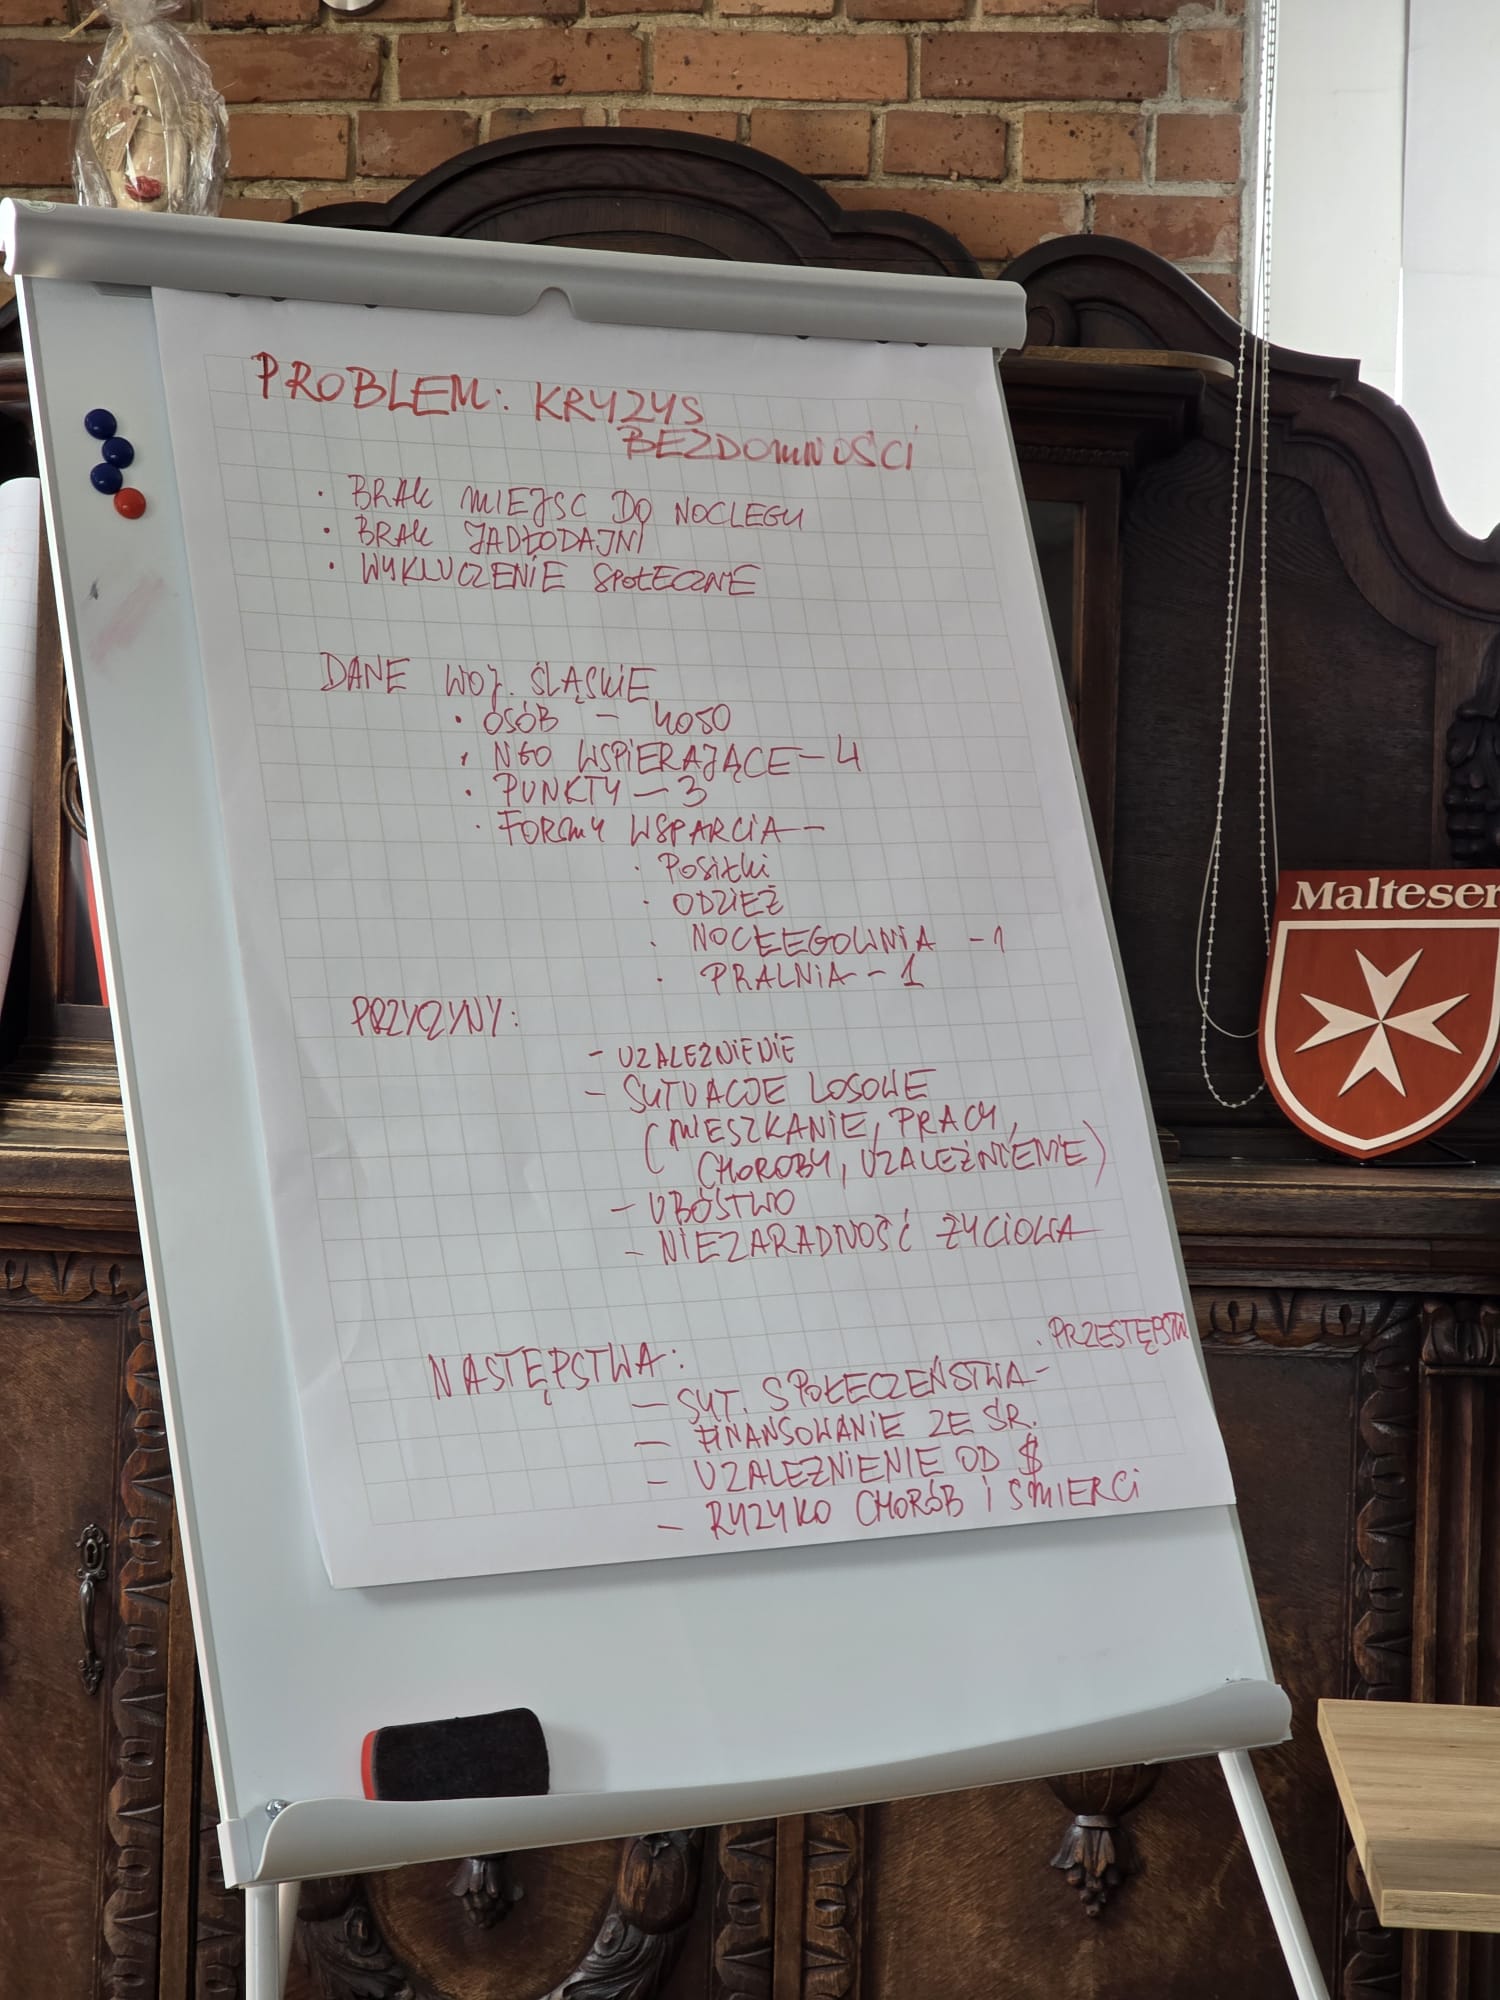 PROBLEM: KRYZYS
BEZDOMNOŚCI
· BRAK MIEJSC DO NOCLEGU
· BRAK JADŁODAJNI
· WYKLUCZENIE SPOŁECZNE
DANE WOJ. ŚLĄSKIE
· OSÓB – 4050
· NGO WSPIERAJĄCE – 4
· PUNKTY – 3
· FORMY WSPARCIA –
· POSIŁKI
· ODZIEŻ
· NOCLEGOWNIA – 1
· PRALNIA – 1
PRZYCZYNY:
– UZALEŻNIENIE
– SYTUACJE LOSOWE
(MIESZKANIE, PRACY,
CHOROBY, UZALEŻNIENIE)
– UBÓSTWO
– NIEZARADNOŚĆ ŻYCIOWA
NASTĘPSTWA:
· PRZESTĘPSTW
– SYT. SPOŁECZEŃSTWA –
– FINANSOWANIE ZE ŚR.
– UZALEŻNIENIE OD $
– RYZYKO CHORÓB I ŚMIERCI
Malteser